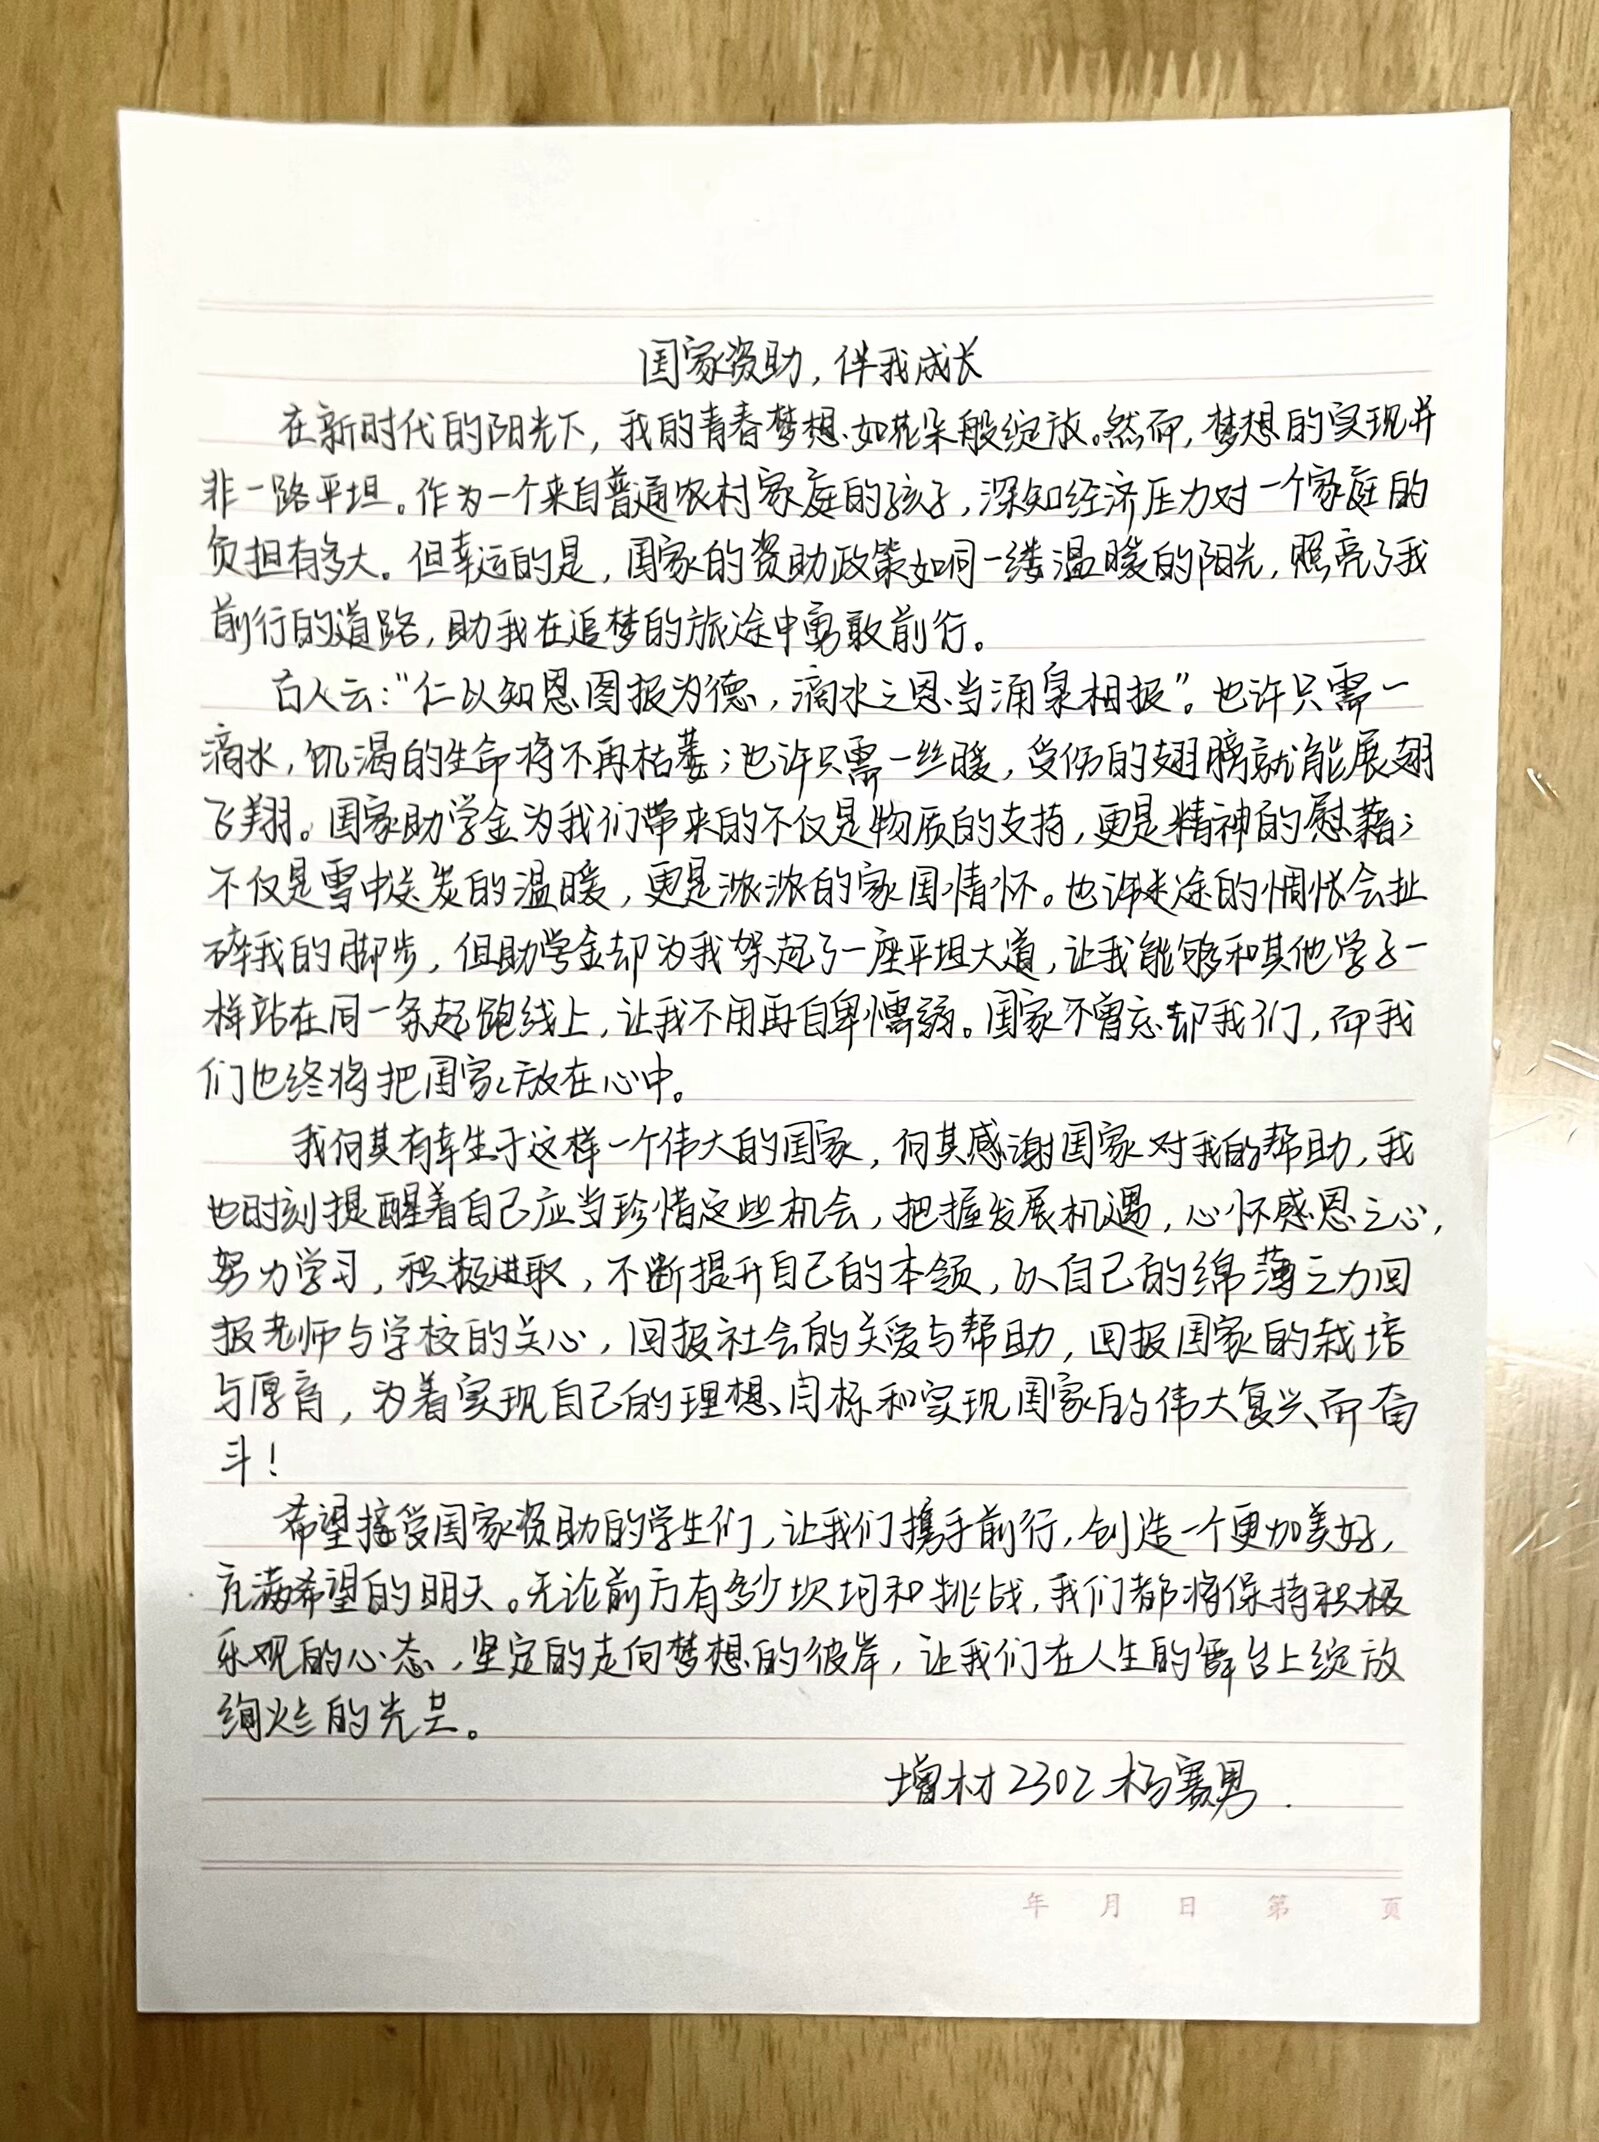 国家资助，伴我成长
在新时代的阳光下，我的青春梦想如花朵般绽放。然而，梦想的实现并
非一路平坦。作为一个来自普通农村家庭的孩子，深知经济压力对一个家庭的
负担有多大。但幸运的是，国家的资助政策如同一缕温暖的阳光，照亮了我
前行的道路，助我在追梦的旅途中勇敢前行。
古人云：“仁以知恩图报为德，滴水之恩当涌泉相报”。也许只需一
滴水，饥渴的生命将不再枯萎；也许只需一丝暖，受伤的翅膀就能展翅
飞翔。国家助学金为我们带来的不仅是物质的支持，更是精神的慰藉；
不仅是雪中送炭的温暖，更是浓浓的家国情怀。也许迷途的惆怅会扯
碎我的脚步，但助学金却为我架起了一座平坦大道，让我能够和其他学子一
样站在同一条起跑线上，让我不用再自卑懦弱。国家不曾忘却我们，而我
们也终将把国家放在心中。
我何其有幸生于这样一个伟大的国家，何其感谢国家对我的帮助，我
也时刻提醒着自己应当珍惜这些机会，把握发展机遇，心怀感恩之心，
努力学习，积极进取，不断提升自己的本领，以自己的绵薄之力回
报老师与学校的关心，回报社会的关爱与帮助，回报国家的栽培
与厚育，为着实现自己的理想、目标和实现国家的伟大复兴而奋
斗！
希望接受国家资助的学生们，让我们携手前行，创造一个更加美好，
充满希望的明天。无论前方有多少坎坷和挑战，我们都将保持积极
乐观的心态，坚定的走向梦想的彼岸，让我们在人生的舞台上绽放
绚烂的光芒。
增材2302 杨赛男.
年 月 日 第 页